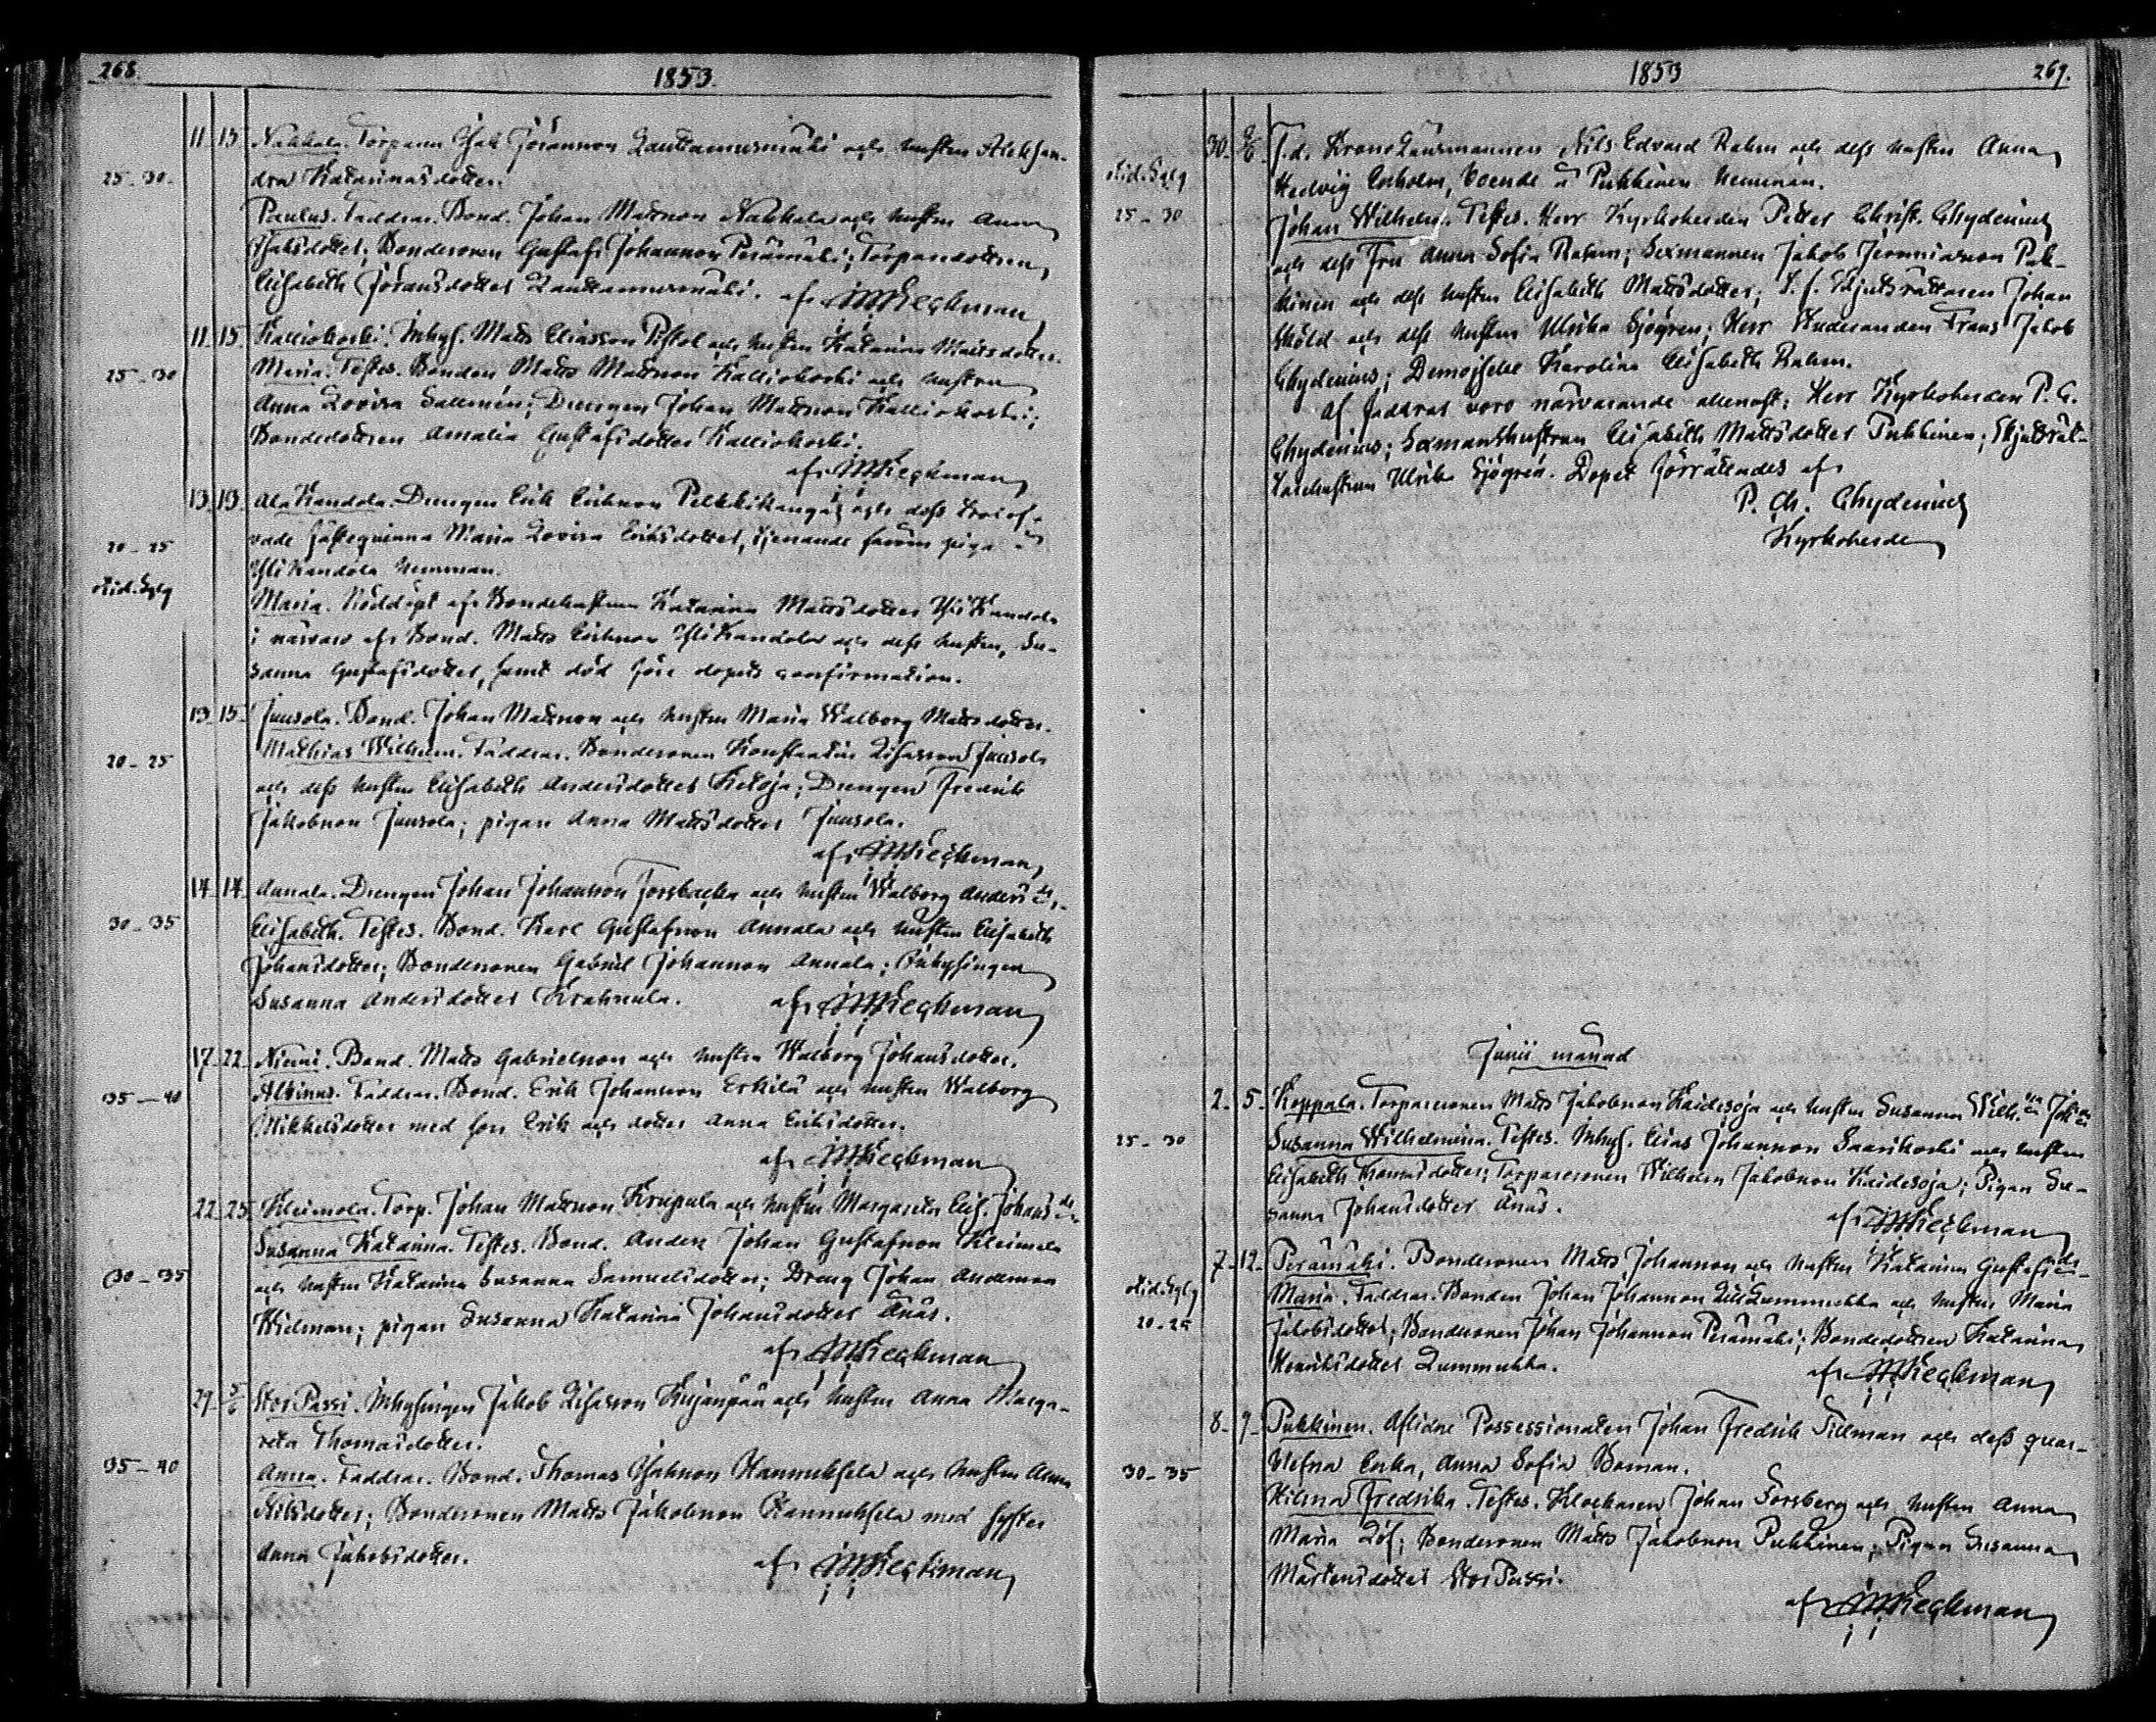 268.
1853.
11 15 Nakkala. Torparen Isak Jöransson Lauttamusmäki och hustru Aleksan-
25-30. dra Katarinasdotter.
Paulus. Faddrar. Bond. Johan Mattsson Nakkala och hustru Anna
Isaksdotter; Bondesonen Gustaf Johansson Perämäki; Torparedottren
Elisabeth Jöransdotter Lauttamusmäki. af Wieckman
11. 15. Kalliokoski. Inhys. Matts Eliasson Pistol och hustru Katarina Mattsdotter.
25-30 Maria. Testes. Bonden Matts Mattsson Kalliokoski och hustru
Anna Lovisa Sallmén; Drengen Johan Mattsson Kalliokoski;
Bondedottren Amalia Gustafsdotter Kalliokoski.
af Wieckman
13. 13. Ala Kandola. Drengen Erik Eriksson Pelkkikangas och dess trolof-
20-25 vade fästeqvinna Maria Lovisa Eriksdotter, tjenande såsom piga å
oid. Sglg Yli Kandola hemman.
Maria. Nöddöpt af Bondehustrun Katarina Mattsdotter Yli Kandola
i närvaro af Bond. Matts Eriksson Yli Kandola och dess hustru, Su-
sanna Gustafsdotter, samt död före dopets confirmation.
13. 15. Juusola. Bond. Johan Mattsson och hustru Maria Walborg Mattsdotter.
20-25 Mathias Wilhelm. Faddrar. Bondesonen Konstantin Lisasson Juusola
och dess hustru Elisabeth Andersdotter Ketoja; Drengen Fredrik
Jakobsson Juusola; pigan Anna Mattsdotter Juusola.
af Wieckman
14. 14. Annala. Drengen Johan Johansson Forsbacka och hustru Walborg Andersdr.
30-35 Elisabeth. Testes. Bond. Karl Gustafsson Annala och hustru Elisabeth
Johansdotter; Bondesonen Gabriel Johansson Annala; Inhysingen
Susanna Andersdotter Krahnula. af Wieckman
17. 22. Niemi. Bond. Matts Gabrielsson och hustru Walborg Johansdotter.
35-40 Albinus. Faddrar. Bond. Erik Johansson Erkilä och hustru Walborg
Mikkelsdotter med son Erik och dotter Anna Eriksdotter.
af Wieckman
22. 25. Kleimola. Torp. Johan Mattsson Krupula och hustru Margareta Elis. Johansdr
Susanna Katarina. Testes. Bond. Anders Johan Gustafsson Kleimola
30-35 och hustru Katarina Susanna Samuelsdotter; Dreng Johan Andersson
Wielman; pigan Susanna Katarina Johansdotter Knås.
af Wieckman
29. 5/6 Stor Passi. Inhysingen Jakob Lisasson Kujanpää och hustru Anna Marga-
reta Thomasdotter.
35-40 Anna. Faddrar. Bond. Thomas Isaksson Hannuksela och hustru Anna
Nilsdotter; Bondesonen Matts Jakobsson Hannuksela med syster
Anna Jakobsdotter. af Wieckman
1853
269.
30. 2/6 F.d. Krono Länsmannen Nils Edvard Rahm och dess hustru Anna
oid. Sglg Hedvig Enholm, boende å Pukkinen hemman.
25-30 Johan Wilhelm. Testes. Herr Kyrkoherden Petter Christ. Chydenius
och dess Fru Anna Sofia Rahm; Sexmannen Jakob Jeremiasson Puk-
kinen och dess hustru Elisabeth Mattsdotter; T.f. Skjutsrättaren Johan
Sköld och dess hustru Ulrika Sjögrén; Herr Studeranden Frans Jakob
Chydenius; Demoiselle Karolina Elisabeth Rahm.
Af faddrar voro närvarande allenast: Herr Kyrkoherden P. C.
Chydenius; Sexmanshustrun Elisabeth Mattsdotter Pukkinen; Skjutsrät-
tarehustrun Ulrika Sjögrén. Dopet förrättades af
P. Ch. Chydenius
Kyrkoherde
Junii månad
2. 5. Koppala. Torparesonen Matts Jakobsson Kaidesoja och hustru Susanna Wilh:na Joh:dr
25-30 Susanna Wilhelmina. Testes. Inhys. Elias Johansson Saarikoski och hustru
Elisabeth Thomasdotter; Torparesonen Wilhelm Jakobsson Kaidesoja; Pigan Su-
sanna Johansdotter Knås. af Wieckman
7. 12. Perämäki. Bondesonen Matts Johansson och hustru Katarina Gustafsdr
oid. Sglg Maria. Faddrar. Bonden Johan Johansson Lill Lummukka och hustru Maria
20-25 Jakobsdotter; Bondesonen Johan Johansson Perämäki; Bondedottren Katarina
Henriksdotter Lummukka. af Wieckman
8. 9. Pukkinen. Aflidne Possessionaten Johan Fredrik Tillman och dess qvar-
30-35 lefna Enka, Anna Sofia Boman.
Hilma Fredrika. Testes. Klockaren Johan Forsberg och hustru Anna
Maria Löf; Bondesonen Matts Jakobsson Pukkinen; Pigan Susanna
Mårtensdotter Stor Passi.
af Wieckman